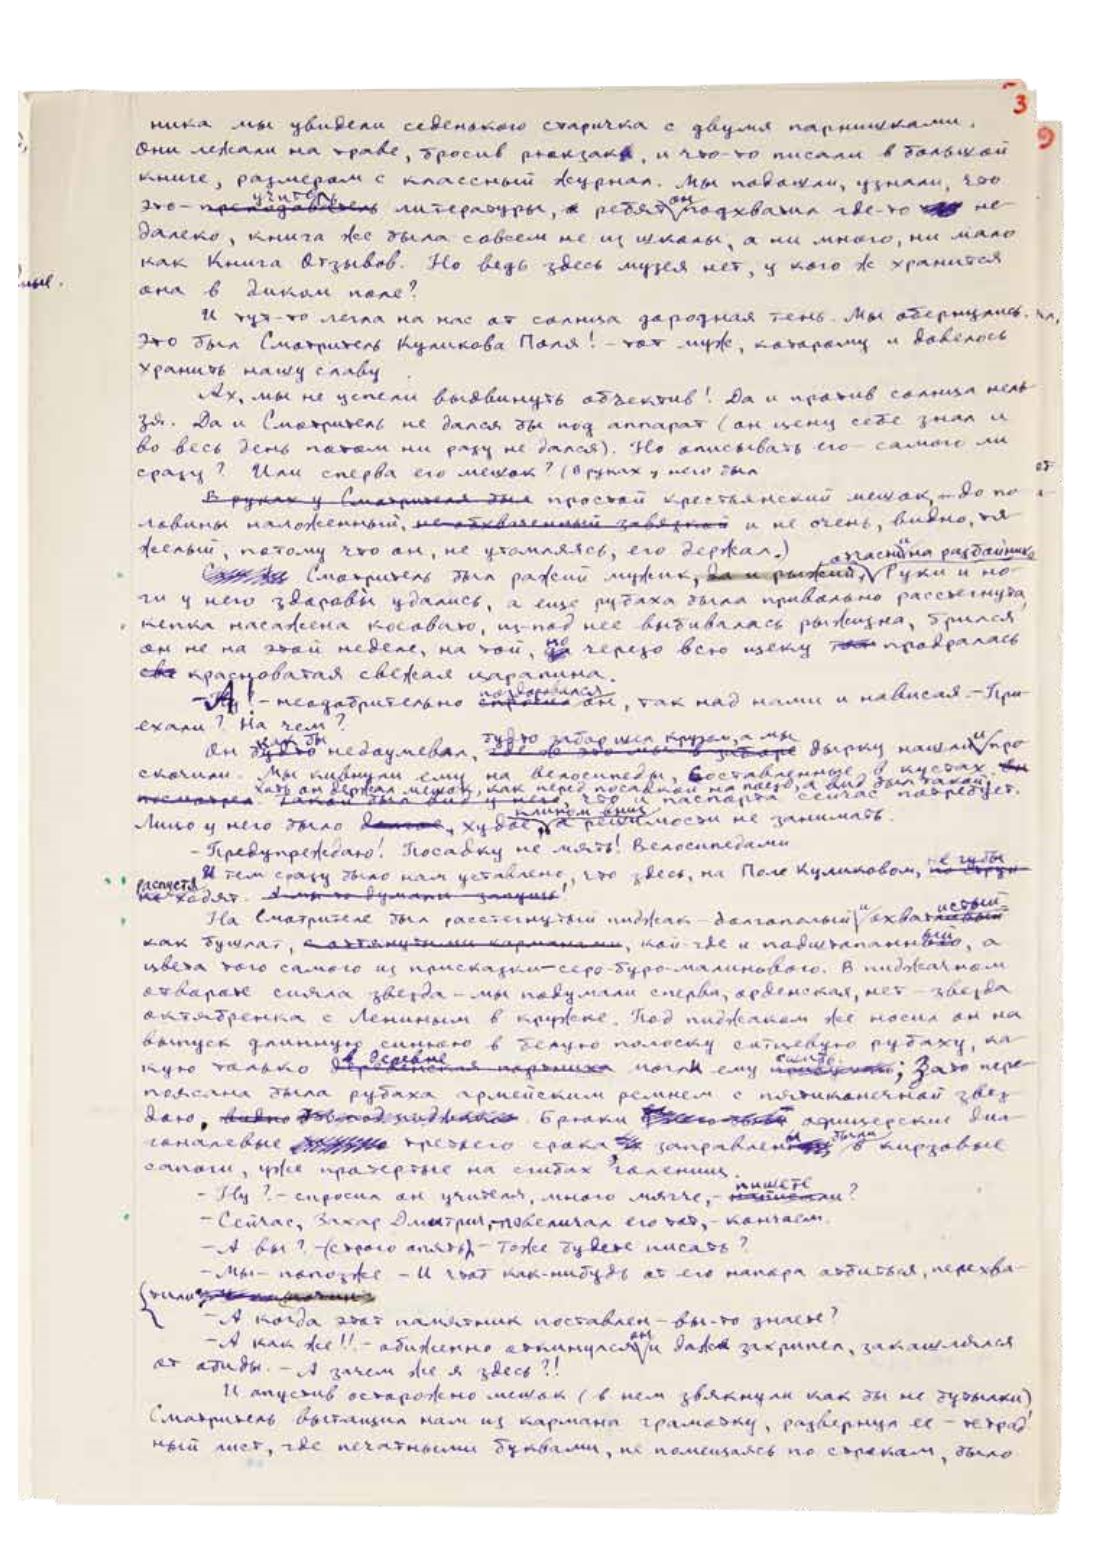 3
9
ника мы увидели седенького старичка с двумя парнишками.
Они лежали на траве, бросив рюкзак, и что-то писали в большой
книге, размером с классный журнал. Мы подошли, узнали, что
учитель он
это – преподаватель литературы, а ребят подхватил где-то не-
далеко, книга же была совсем не из школы, а ни много, ни мало
как Книга Отзывов. Но ведь здесь музея нет, у кого ж хранится
она в диком поле?
И тут-то легла на нас от солнца дородная тень. Мы обернулись.
Это был Смотритель Куликова Поля! – тот муж, которому и довелось
хранить нашу славу.
Ах, мы не успели выдвинуть объектив! Да и против солнца нель-
зя. Да и Смотритель не дался бы под аппарат (он цену себе знал и
во весь день потом ни разу не дался). Но описывать его – самого ли
сразу? Или сперва его мешок? (В руках у него был
В руках у Смотрителя был простой крестьянский мешок, до по-
ловины наложенный, не обхваченный завязкой и не очень, видно, тя-
желый, потому что он, не утомляясь, его держал.)
отчасти и на разбойника
Смотритель был ражий мужик, да и рыжий, Руки и но-
ги у него здоровы удались, а еще рубаха была привольно расстегнута,
кепка насажена косовато, из-под нее выбивалась рыжизна, брился
но
он не на этой неделе, на той, черезо всю щеку продралась
красноватая свежая царапина.
поздоровался
– А! – неодобрительно спросил он, так над нами и нависая. – При-
ехали? На чем?
как бы будто забор шел кругом, а мы и
Он будто недоумевал, дырку нашли про-
скочили. Мы кивнули ему на велосипеды, составленные в кустах. Он
хоть он держал мешок, как перед посадкой на поезд, а вид был такой,
посмотрел. Такой был вид у него, что и паспорта сейчас потребует.
клином вниз
Лицо у него было худое, а решимости не занимать.
– Предупреждаю! Посадку не мять! Велосипедами
И тем сразу было нам уставлено, что здесь, на Поле Куликовом, губы
распустя
не ходят.
и истый
На Смотрителе был расстегнутый пиджак – долгополый охватистый
как бушлат, с оттянутыми карманами, кой-где и подштопанный, а
цвета того самого из присказки – серо-буро-малинового. В пиджачном
отвороте сияла звезда – мы подумали сперва, орденская, нет – звезда
октябренка с Лениным в кружке. Под пиджаком же носил он на
выпуск длинную синюю в белую полоску ситцевую рубаху, ка-
в деревне сшить
кую только могли ему; Зато пере-
поясана была рубаха армейским ремнем с пятиконечной звез-
дою. Брюки офицерские диа-
были
гоналевые третьего срока заправлены в кирзовые
сапоги, уже протертые на сгибах голенищ.
пишете
– Ну? – спросил он учителя, много мягче, – написали?
– Сейчас, Захар Дмитрич, – повеличал его тот, – кончаем.
– А вы? – (строго опять) – Тоже будете писать?
– Мы – попозже – И чтоб как-нибудь от его напора отбиться, перехва-
тили
– А когда этот памятник поставлен – вы-то знаете?
он
– А как же!! – обиженно откинулся и даже захрипел, закашлялся
от обиды. – А зачем же я здесь?!
И опустив осторожно мешок (в нем звякнули как бы не бутылки)
Смотритель вытащил нам из кармана грамотку, развернул ее – тетрад-
ный лист, где печатными буквами, не помещаясь по строкам, было